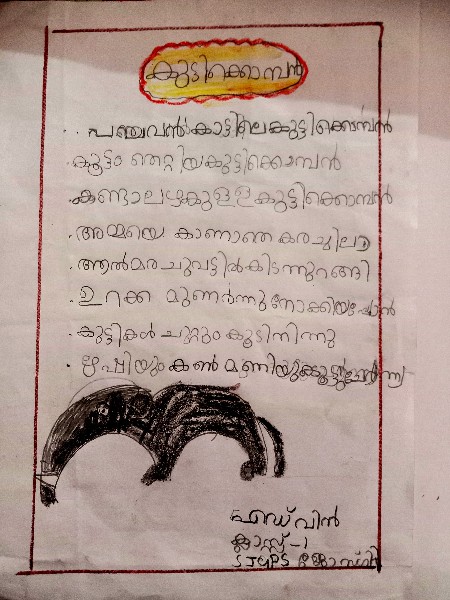 കുട്ടിക്കൊമ്പൻ
പഞ്ചവൻകാട്ടിലെകുട്ടിക്കൊമ്പൻ
കൂട്ടം തെറ്റിയകുട്ടിക്കൊമ്പൻ
കണ്ടാലഴകുള്ളകുട്ടിക്കൊമ്പൻ
അമ്മയെ കാണാതെ കരച്ചിലായ
ആൽമരചുവട്ടിൽകിടന്നുറങ്ങി
ഉറക്ക മുണർന്നുനോക്കിയപ്പോൻ
കുട്ടികൾ ചുറ്റും കൂടിനിന്നു
കൺ മണിയും
എഡ്വിൻ
ക്ലാസ്സ് -1
SJUPS